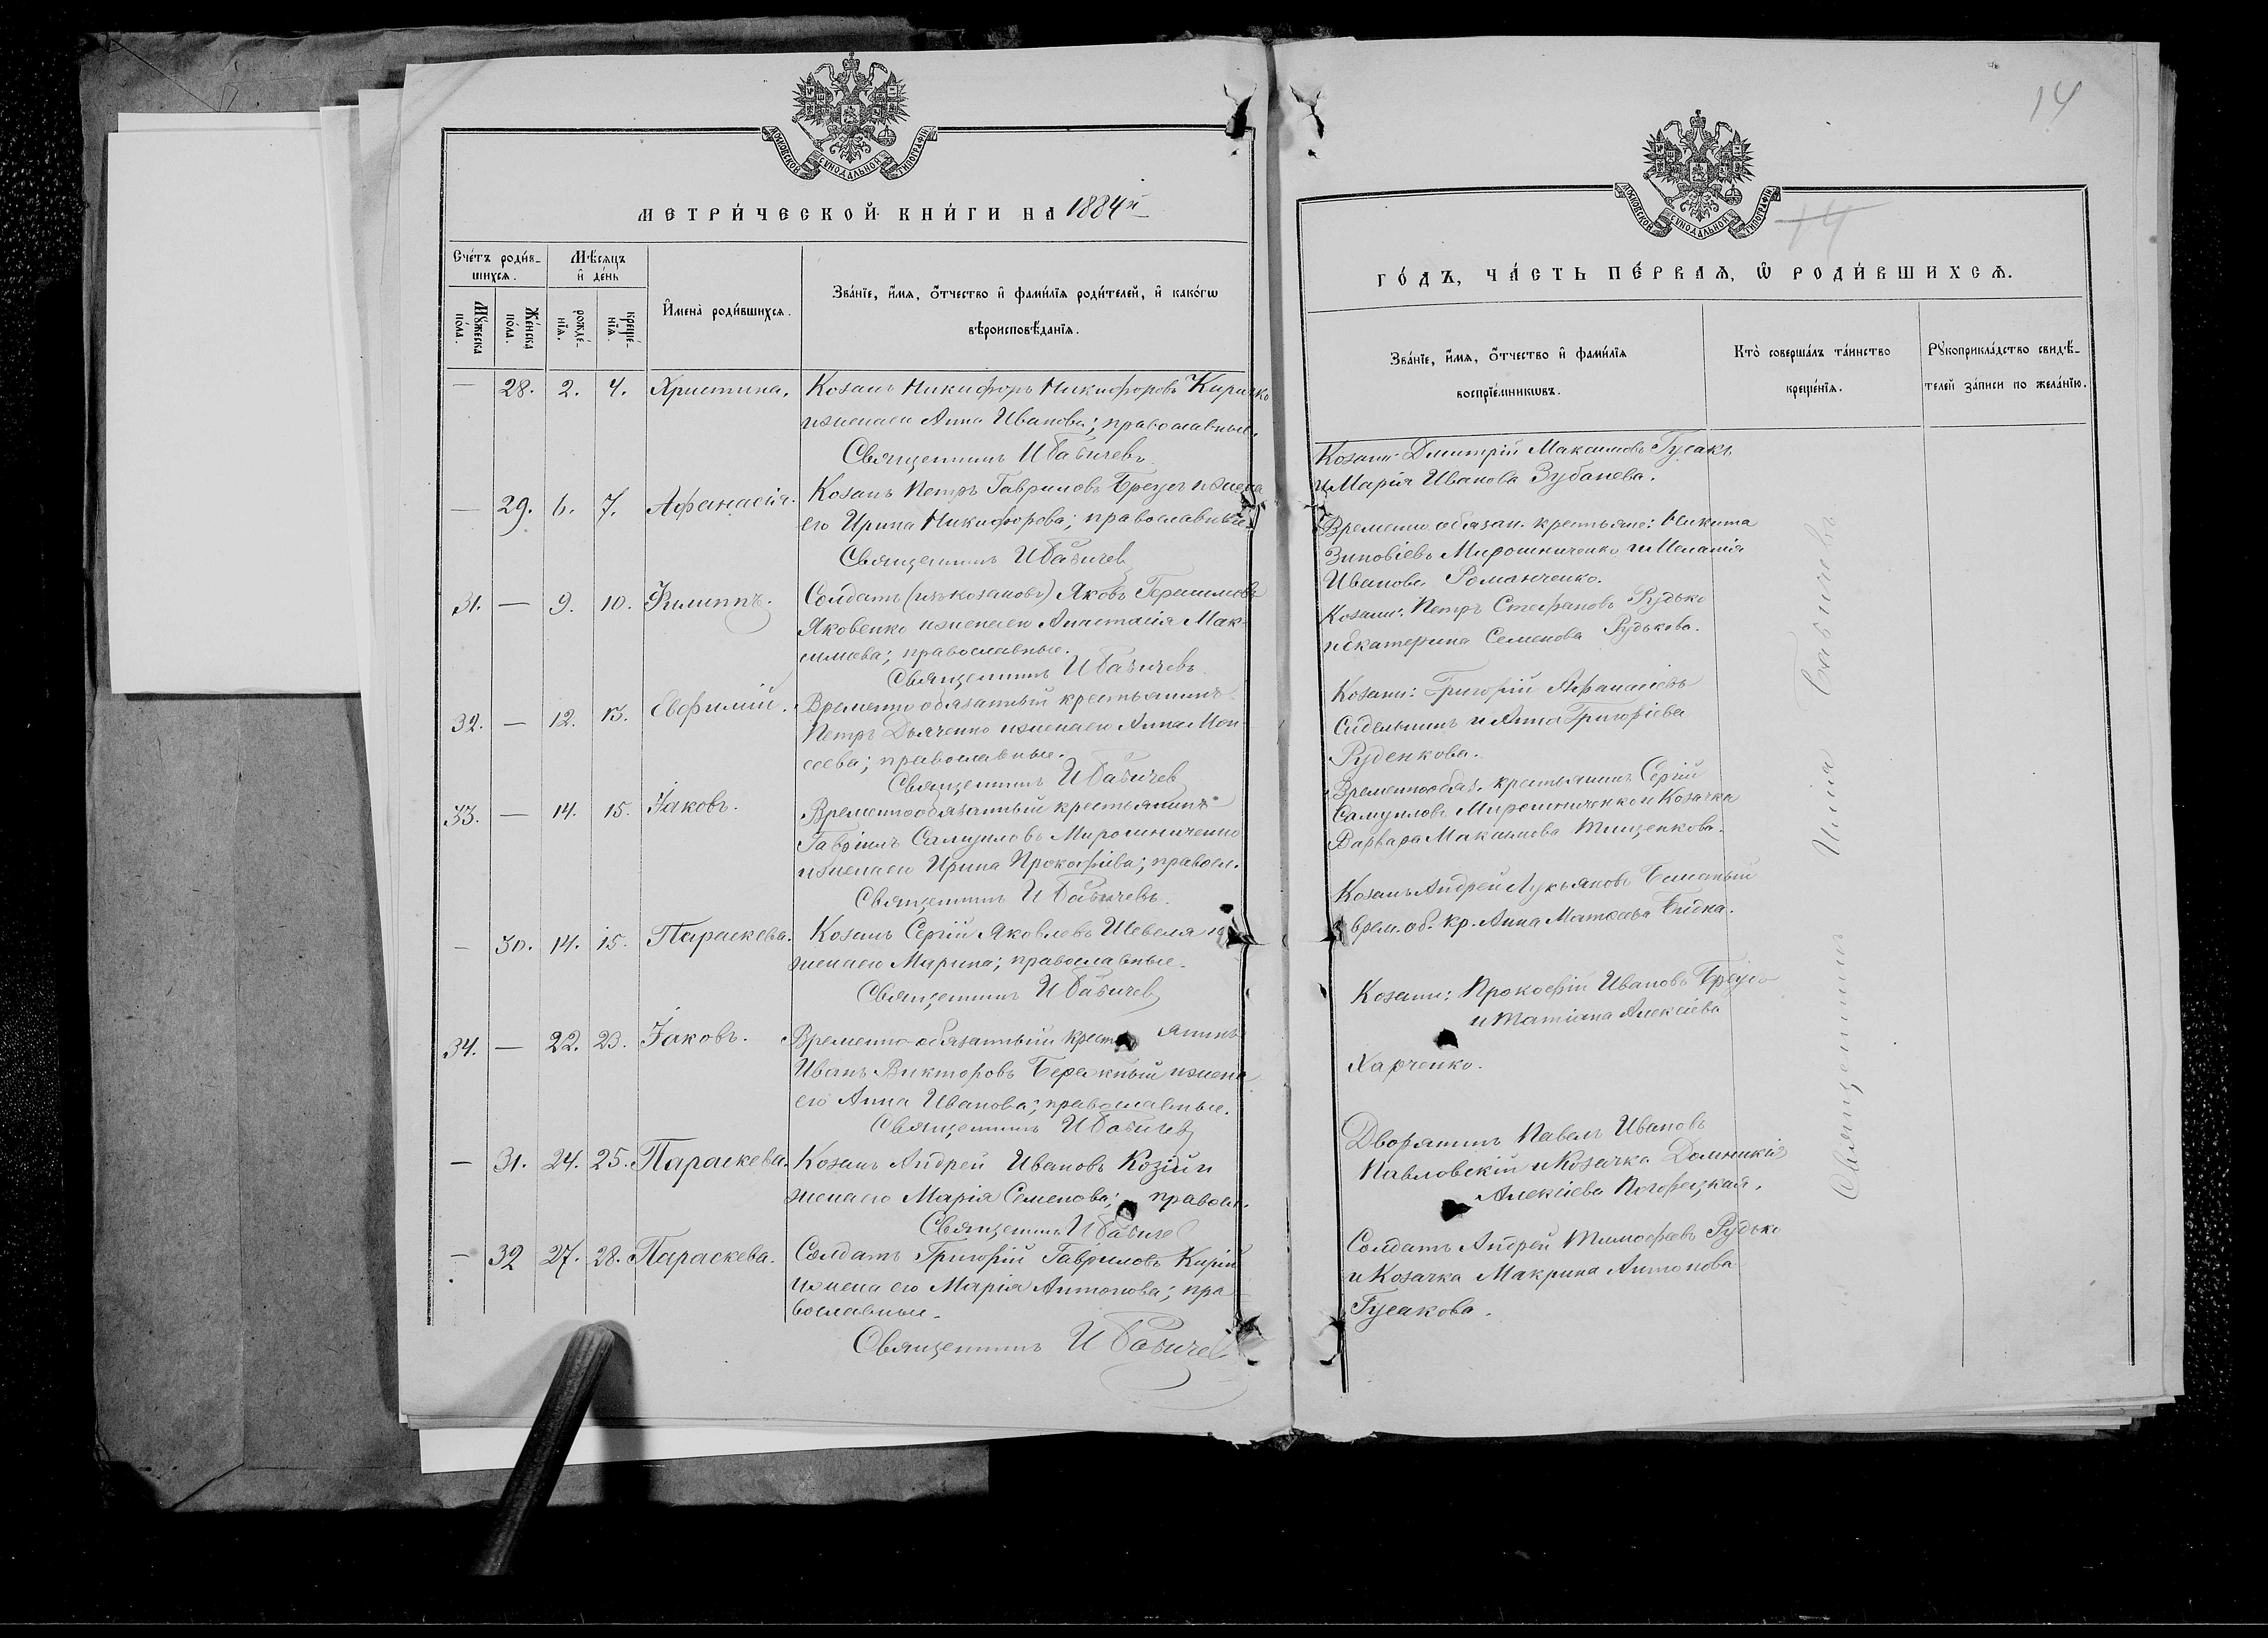 МОСКОВСКОЙ СѴНОДАЛЬНОЙ ТИПОГРАФІИ
МЕТРИ́ЧЕСКОЙ КНИ́ГИ НА 1884й
Сче́тъ роди́в-
шихсѧ.
Мѣ́сѧцъ
и҆ де́нь
Мꙋ́жеска
по́ла.
Же́нска
по́ла.
рожде́-
нїѧ.
креще́-
нїѧ.
И҆мена̀ роди́вшихсѧ.
Зва́нїе, и҆́мѧ, ѻ҆́тчество и҆ фами́лїѧ роди́телей, и҆ како́гѡ
вѣроисповѣ́данїѧ.
— 28. 2. 4. Христина. Козакъ Никифоръ Никифоровъ Киричко
и жена его Анна Иванова; православные.
Священникъ И Бабичевъ
— 29. 6. 7. Афанасія. Козакъ Петръ Гавриловъ Бреусъ и жена
его Ирина Никифорова; православные.
Священникъ И Бабичев
31. — 9. 10. Филиппъ. Солдатъ (изъ козаковъ) Яковъ Герасимовъ
Яковенко и жена его Анастасія Мак-
симова; православные.
Священникъ И Бабичевъ
32. — 12. 13. Евфимій. Временно обязанный крестьянинъ
Петръ Дьяченко и жена его Анна Мои
сеева; православные.
Священникъ И Бабичев
33. — 14. 15. Іаковъ. Временнообязанный крестьянинъ
Гавріилъ Самуиловъ Мирошниченко
и жена его Ирина Прокофіева; правосл.
Священникъ И Бабичевъ.
— 30. 14. 15. Параскева. Козакъ Сергій Яковлевъ Шевеля и
жена его Марина; православные.
Священникъ И Бабичев
34. — 22. 23. Іаковъ. Временно-обязанный крестьянинъ
Иванъ Викторовъ Бережный и жена
его Анна Иванова; православные.
Священникъ И Бабичев
— 31. 24. 25. Параскева. Козакъ Андрей Ивановъ Козій и
жена его Марія Семенова; правосл.
Священникъ И Бабичев
— 32 27. 28. Параскева. Солдатъ Григорій Гавриловъ Кирій
и жена его Марія Антонова; пра
вославные.
Священникъ И Бабичев
14
МОСКОВСКОЙ СѴНОДАЛЬНОЙ ТИПОГРАФІИ
14
ГО́ДЪ, ЧА́СТЬ ПЕ́РВАѦ, Ѡ҆ РОДИ́ВШИХСѦ.
Зва́нїе, и҆́мѧ, ѻ҆́тчество и҆ фами́лїѧ
воспрїе́мникѡвъ.
Кто̀ соверша́лъ та́инство
креще́нїѧ.
Рꙋкоприкла́дство свидѣ́-
телей за́писи по жела́нїю.
Козаки: Дмитрій Максимовъ Гусакъ
и Марія Иванова Зубанева.
Временно обязан. крестьяне: Никита
Зиновіевъ Мирошниченко и Меланія
Иванова Романченко.
Козаки: Петръ Стефановъ Рудько
и Екатерина Семенова Рудькова.
Козаки: Григорій Афанасіевъ
Сидельникъ и Анна Григоріева
Руденкова.
Временнообяз. крестьянинъ Сергій
Самуиловъ Мирошниченко и Козачка
Варвара Максимова Тищенкова.
Козакъ Андрей Лукьяновъ
и врем. об. кр. Анна Матвеева
Козаки: Прокофій Ивановъ Бреусъ
и Татіана Алексіева
Харченко.
Дворянинъ Павелъ Ивановъ
Павловскій и Козачка Домникія
Алексіева Погорецкая.
Солдатъ Андрей Тимофеевъ Рудько
и Козачка Макрина Антонова
Гусакова.
Священникъ Илія Бабичевъ